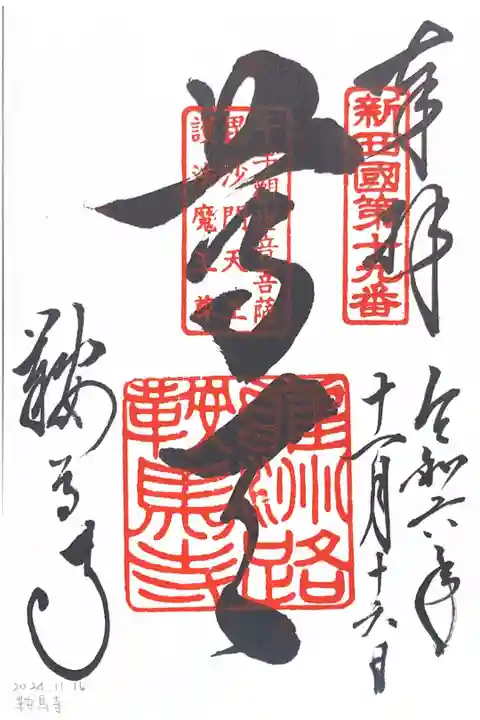 奉拝
新西國第十九番
令和六年
十一月十六日
千手観世音菩薩
毘沙門天王
護法魔王尊
尊天
雍州路
鞍馬寺
鞍馬寺
2024.11.16
鞍馬寺